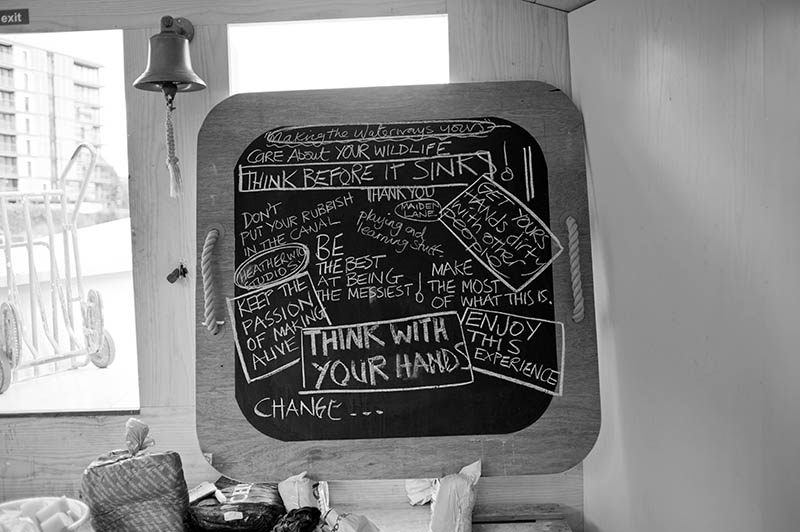 exit
Making the Waterways yours
CARE About YOUR WILDLIFE
THINK BEFORE IT SINKS
THANK YOU
MAIDEN
LANE
DON'T
PUT YOUR RUBBISH
IN THE CANAL
playing and
learning stuff.
GET YOURS
HANDS dirty
with other
people
HEATHERWICK
STUDIOS
BE
THE BEST
AT BEING
THE MESSIEST!
MAKE
THE MOST
OF WHAT THIS IS.
KEEP THE
PASSION
OF MAKING
ALIVE
THINK WITH
YOUR HANDS
ENJOY
THIS
EXPERIENCE
CHANGE...